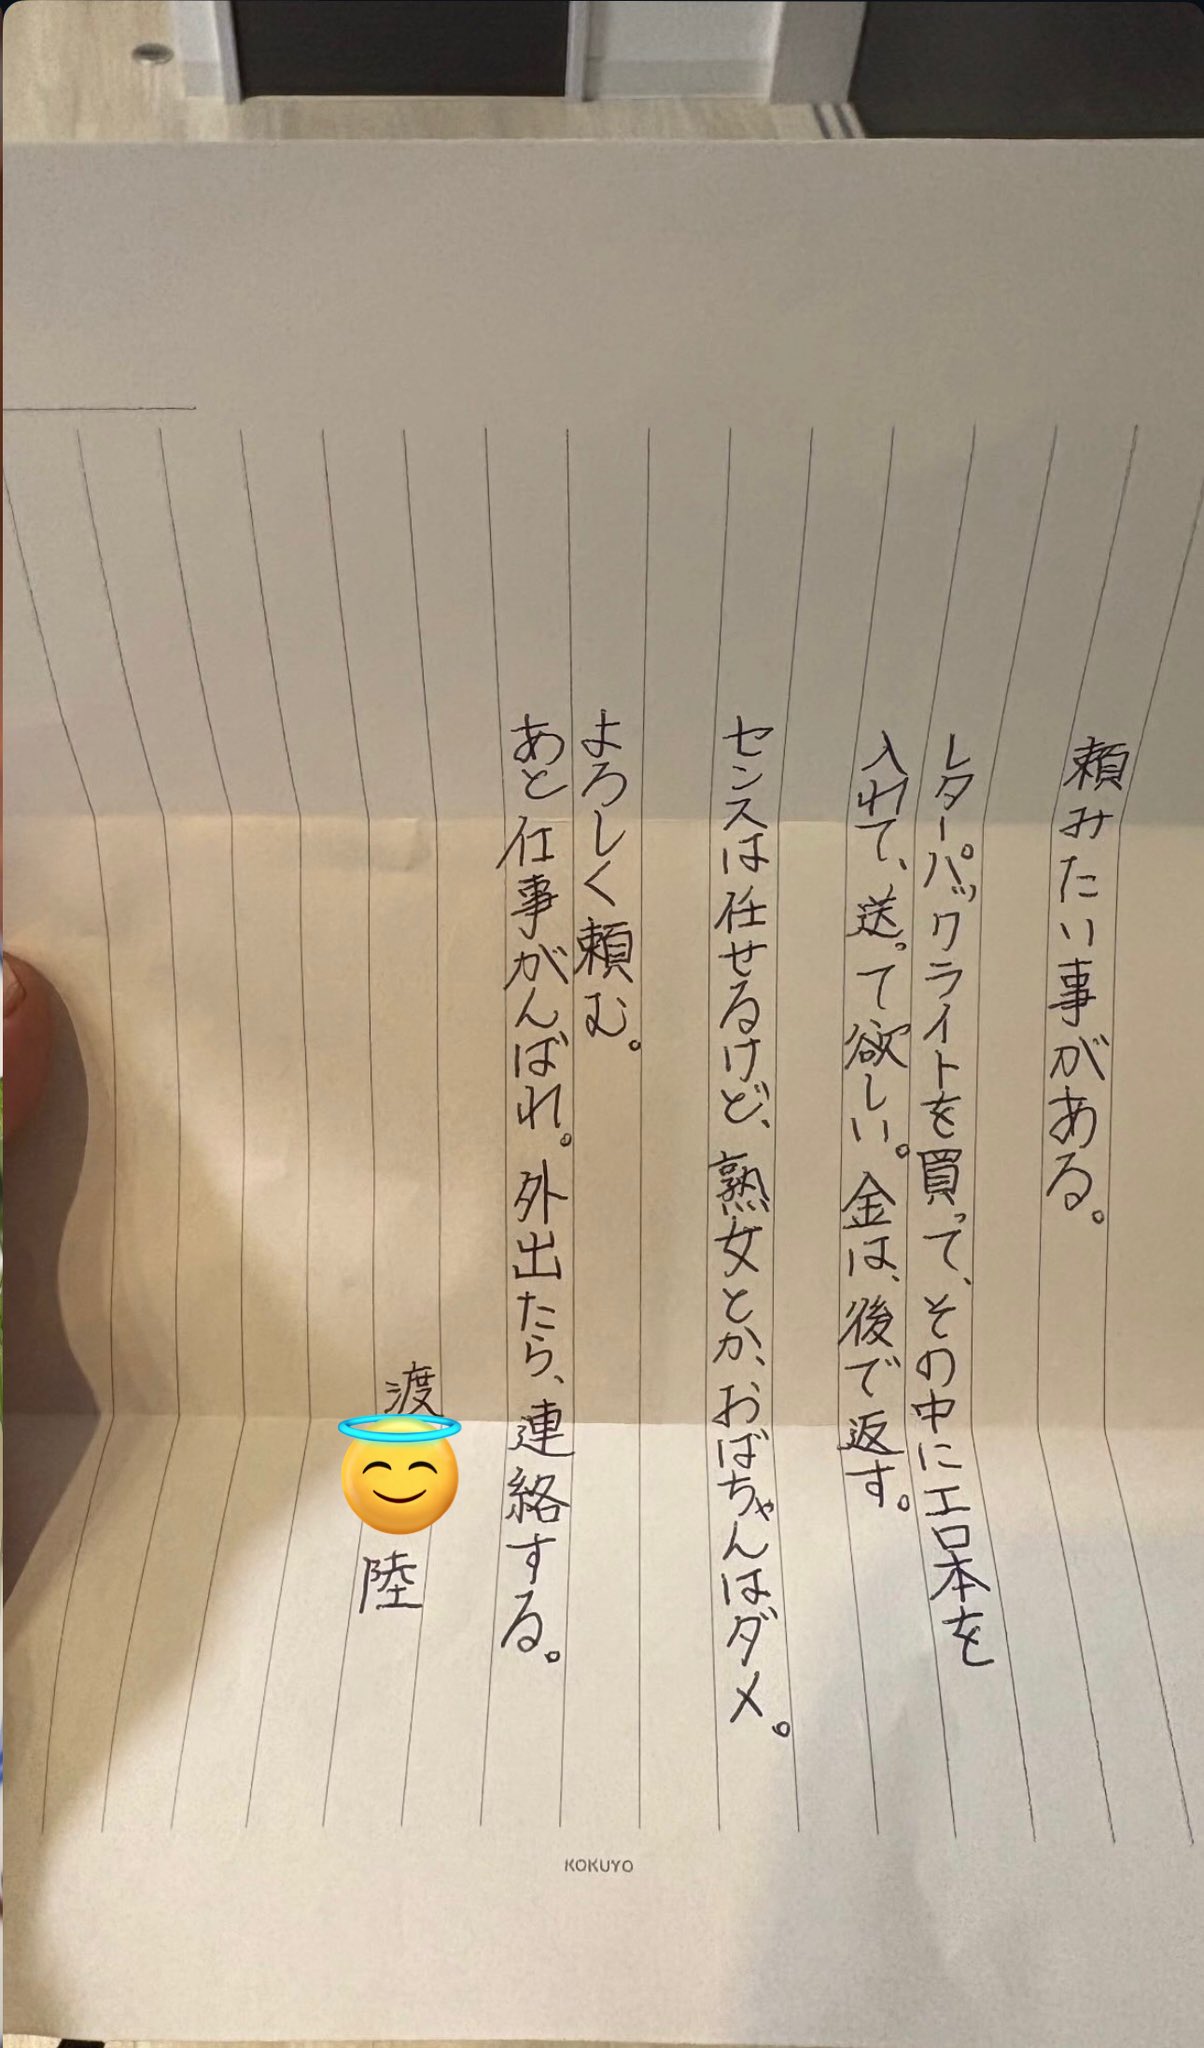 頼みたい事がある。
レターパックライトを買って、その中にエロ本を
入れて、送って欲しい。金は、後で返す。
センスは任せるけど、熟女とか、おばちゃんはダメ。
よろしく頼む。
あと仕事がんばれ。外出たら、連絡する。
渡
陸
KOKUYO